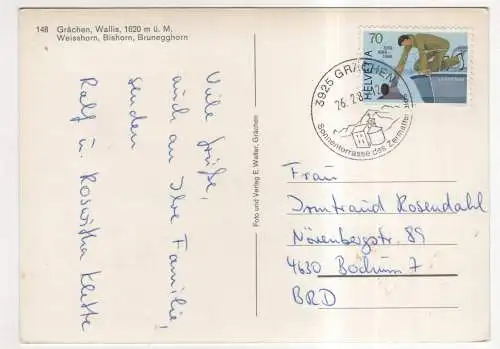 148 Grächen, Wallis, 1620 m ü. M.
Weisshorn, Bishorn, Brunegghorn
Viele Grüße,
auch an Ihre Familie,
senden
Ralf u. Roswitha Klette
Foto und Verlag E. Walter, Grächen
70
HELVETIA
3925 GRÄCHEN
26.2.8
Sonnenterrasse des Zermatter
Frau
Irmtraud Rosendahl
Nörenbergstr. 89
4630 Bochum 7
BRD